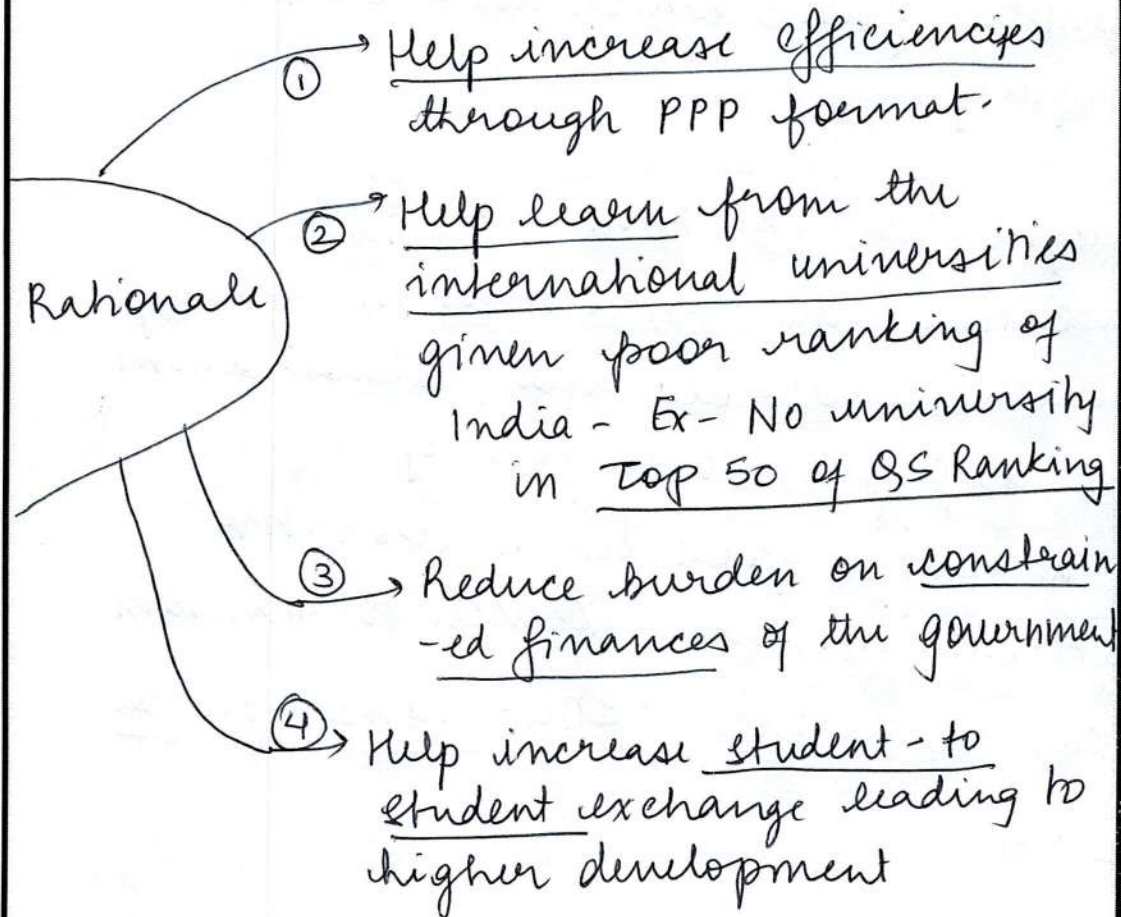 ① Help increase efficiencies
through PPP format.
② Help learn from the
international universities
Rationale
given poor ranking of
India - Ex- No university
in Top 50 of QS Ranking
③ Reduce burden on constrain
-ed finances of the government
④ Help increase student-to
student exchange leading to
higher development